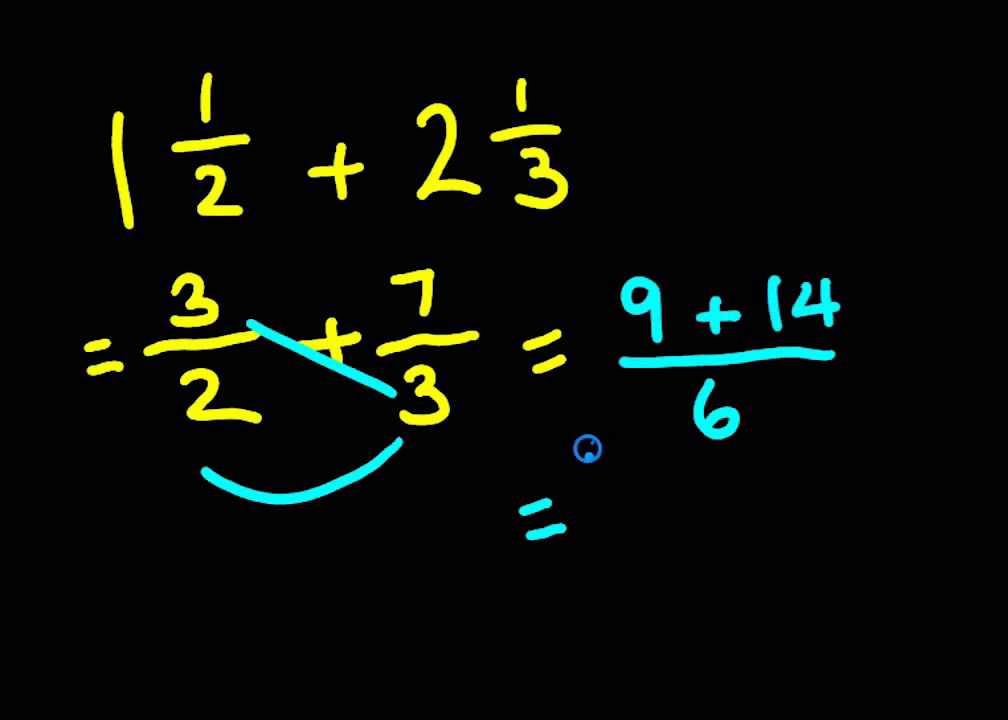 1 1/2 + 2 1/3
= 3/2 + 7/3 = (9 + 14)/6
=